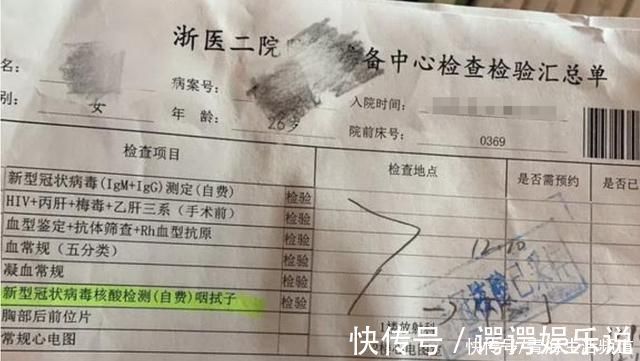 浙医二院 备中心检查检验汇总单
病案号:
入院时间:
别: 女 年 龄: 26岁 院前床号: 0369
检查项目 检查地点 是否需预约 是否已
新型冠状病毒(IgM+IgG)测定(自费) 检验
HIV+丙肝+梅毒+乙肝三系(手术前) 检验
血型鉴定+抗体筛查+Rh血型抗原 检验
血常规(五分类) 检验
凝血常规 检验
新型冠状病毒核酸检测(自费)咽拭子 检验
胸部后前位片
常规心电图
12-10
快传号/谔谔娱乐说